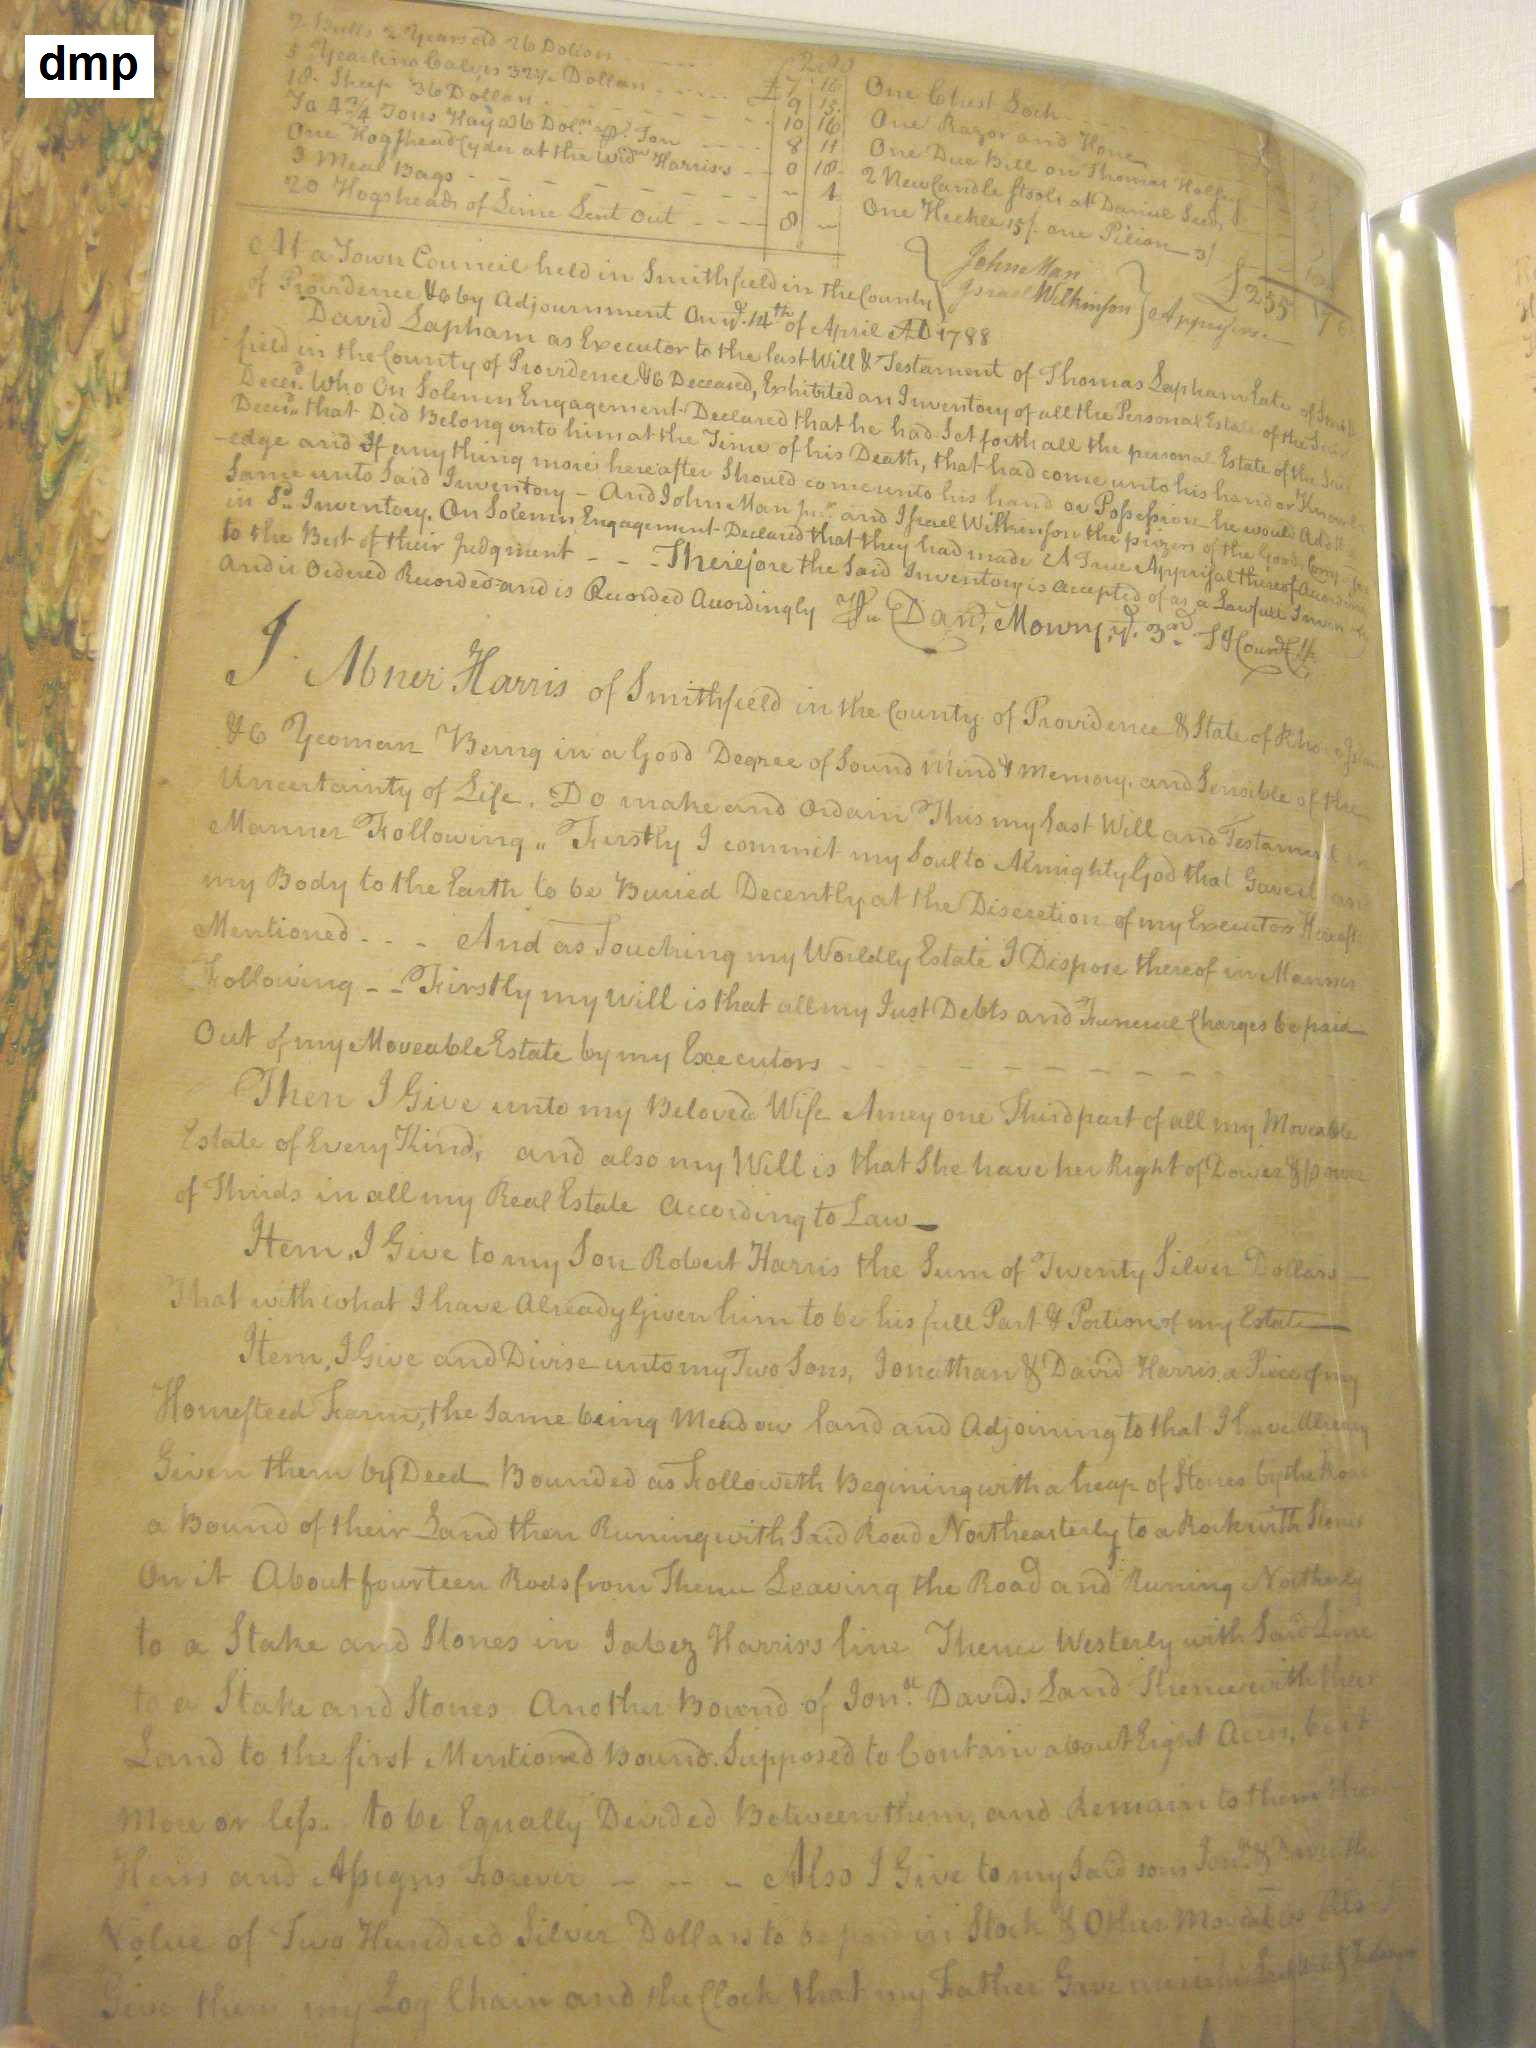 dmp
2 Bulls 2 Years old 26 Dollars
5 Yearling Calves 32½ Dollars £7 16
18 Sheep 36 Dollars 9 15
To 4¾ Tons Hay a 6 Dolrs pr. Ton 10 16
One Hogshead Cyder at the Widw Harris's 8 11
3 Meal Bags 0 18
20 Hogsheads of Lime Sent out 4
8
One Chest Lock
One Razor and Hone
One Due Bill on Thomas
2 New Candle Stools at Daniel
One Heckel 15/ one Pilion 3/
John Man
Israel Wilkinson } Apprizers £255
At a Town Council held in Smithfield in the County
of Providence &c by Adjournment On ye. 14th of April AD 1788
David Lapham as Executor to the last Will & Testament of Thomas Lapham Late of Smith
field in the County of Providence &c Deceased, Exhibited an Inventory of all the Personal Estate of the Said
Decesd. Who On Solemn Engagement Declared that he had Set forth all the personal Estate of the Said
Decesd. that Did Belong unto him at the Time of his Death, that had come unto his hand or Knowl
-edge and If any thing more hereafter Should come unto his hand or Possession he would Add the
Same unto Said Inventory – And John Man Junr. and Israel Wilkinson the prizers of the Goods
in Sd. Inventory, On Solemn Engagement Declared that they had made A True Apprisal thereof According
to the Best of their Judgment - - - Therefore the Said Inventory is accepted of as a Lawfull Inventory
and is Ordered Recorded and is Recorded Accordingly Pr. Danl. Mowry ye. 3rd. T Councl Clk
I Abner Harris of Smithfield in the County of Providence & State of Rhode Island
&c Yeoman Being in a Good Degree of Sound Mind & Memory, and Sensible of the
Uncertainty of Life, Do make and Ordain This my Last Will and Testament in
Manner Following „ Firstly I commit my Soul to Almighty God that Gave it and
my Body to the Earth to be Buried Decently at the Discretion of my Executors Hereaft
Mentioned - - - And as Touching my Worldly Estate I Dispose thereof in Manner
Following - - Firstly my Will is that all my Just Debts and Funeral Charges be paid
Out of my Moveable Estate by my Executors
Then I Give unto my Beloved Wife Amey one Third part of all my Moveable
Estate of Every Kind, and also my Will is that She have her Right of Dower & power
of Thirds in all my Real Estate According to Law
Item, I Give to my Son Robert Harris the Sum of Twenty Silver Dollars
That with what I have Already Given him to be his full Part & Portion of my Estate
Item, I Give and Divise unto my Two Sons, Jonathan & David Harris, a Piece of my
Homesteed Farm, the Same being Meadow land and Adjoining to that I have Already
Given them by Deed Bounded as Followeth Begining with a heap of Stones by the Road
a Bound of their Land then Runing with Said Road Northeasterly to a Rock with Stones
On it About fourteen Rods from Thence Leaving the Road and Runing Northerly
to a Stake and Stones in Jabez Harris's line Thence Westerly with Said Line
to a Stake and Stones Another Bound of Jonn. & Davids Land Thence with their
Land to the first Mentioned Bound. Supposed to Contain about Eight Acres, be it
More or less. to be Equally Devided Between them, and Remain to them their
Heirs and Assigns Forever - - - Also I Give to my Said sons Jonn. & David the
Value of Two Hundred Silver Dollars to be paid in Stock & Other Moveables Also I
Give them my Log Chain and the Clock that my Father Gave me